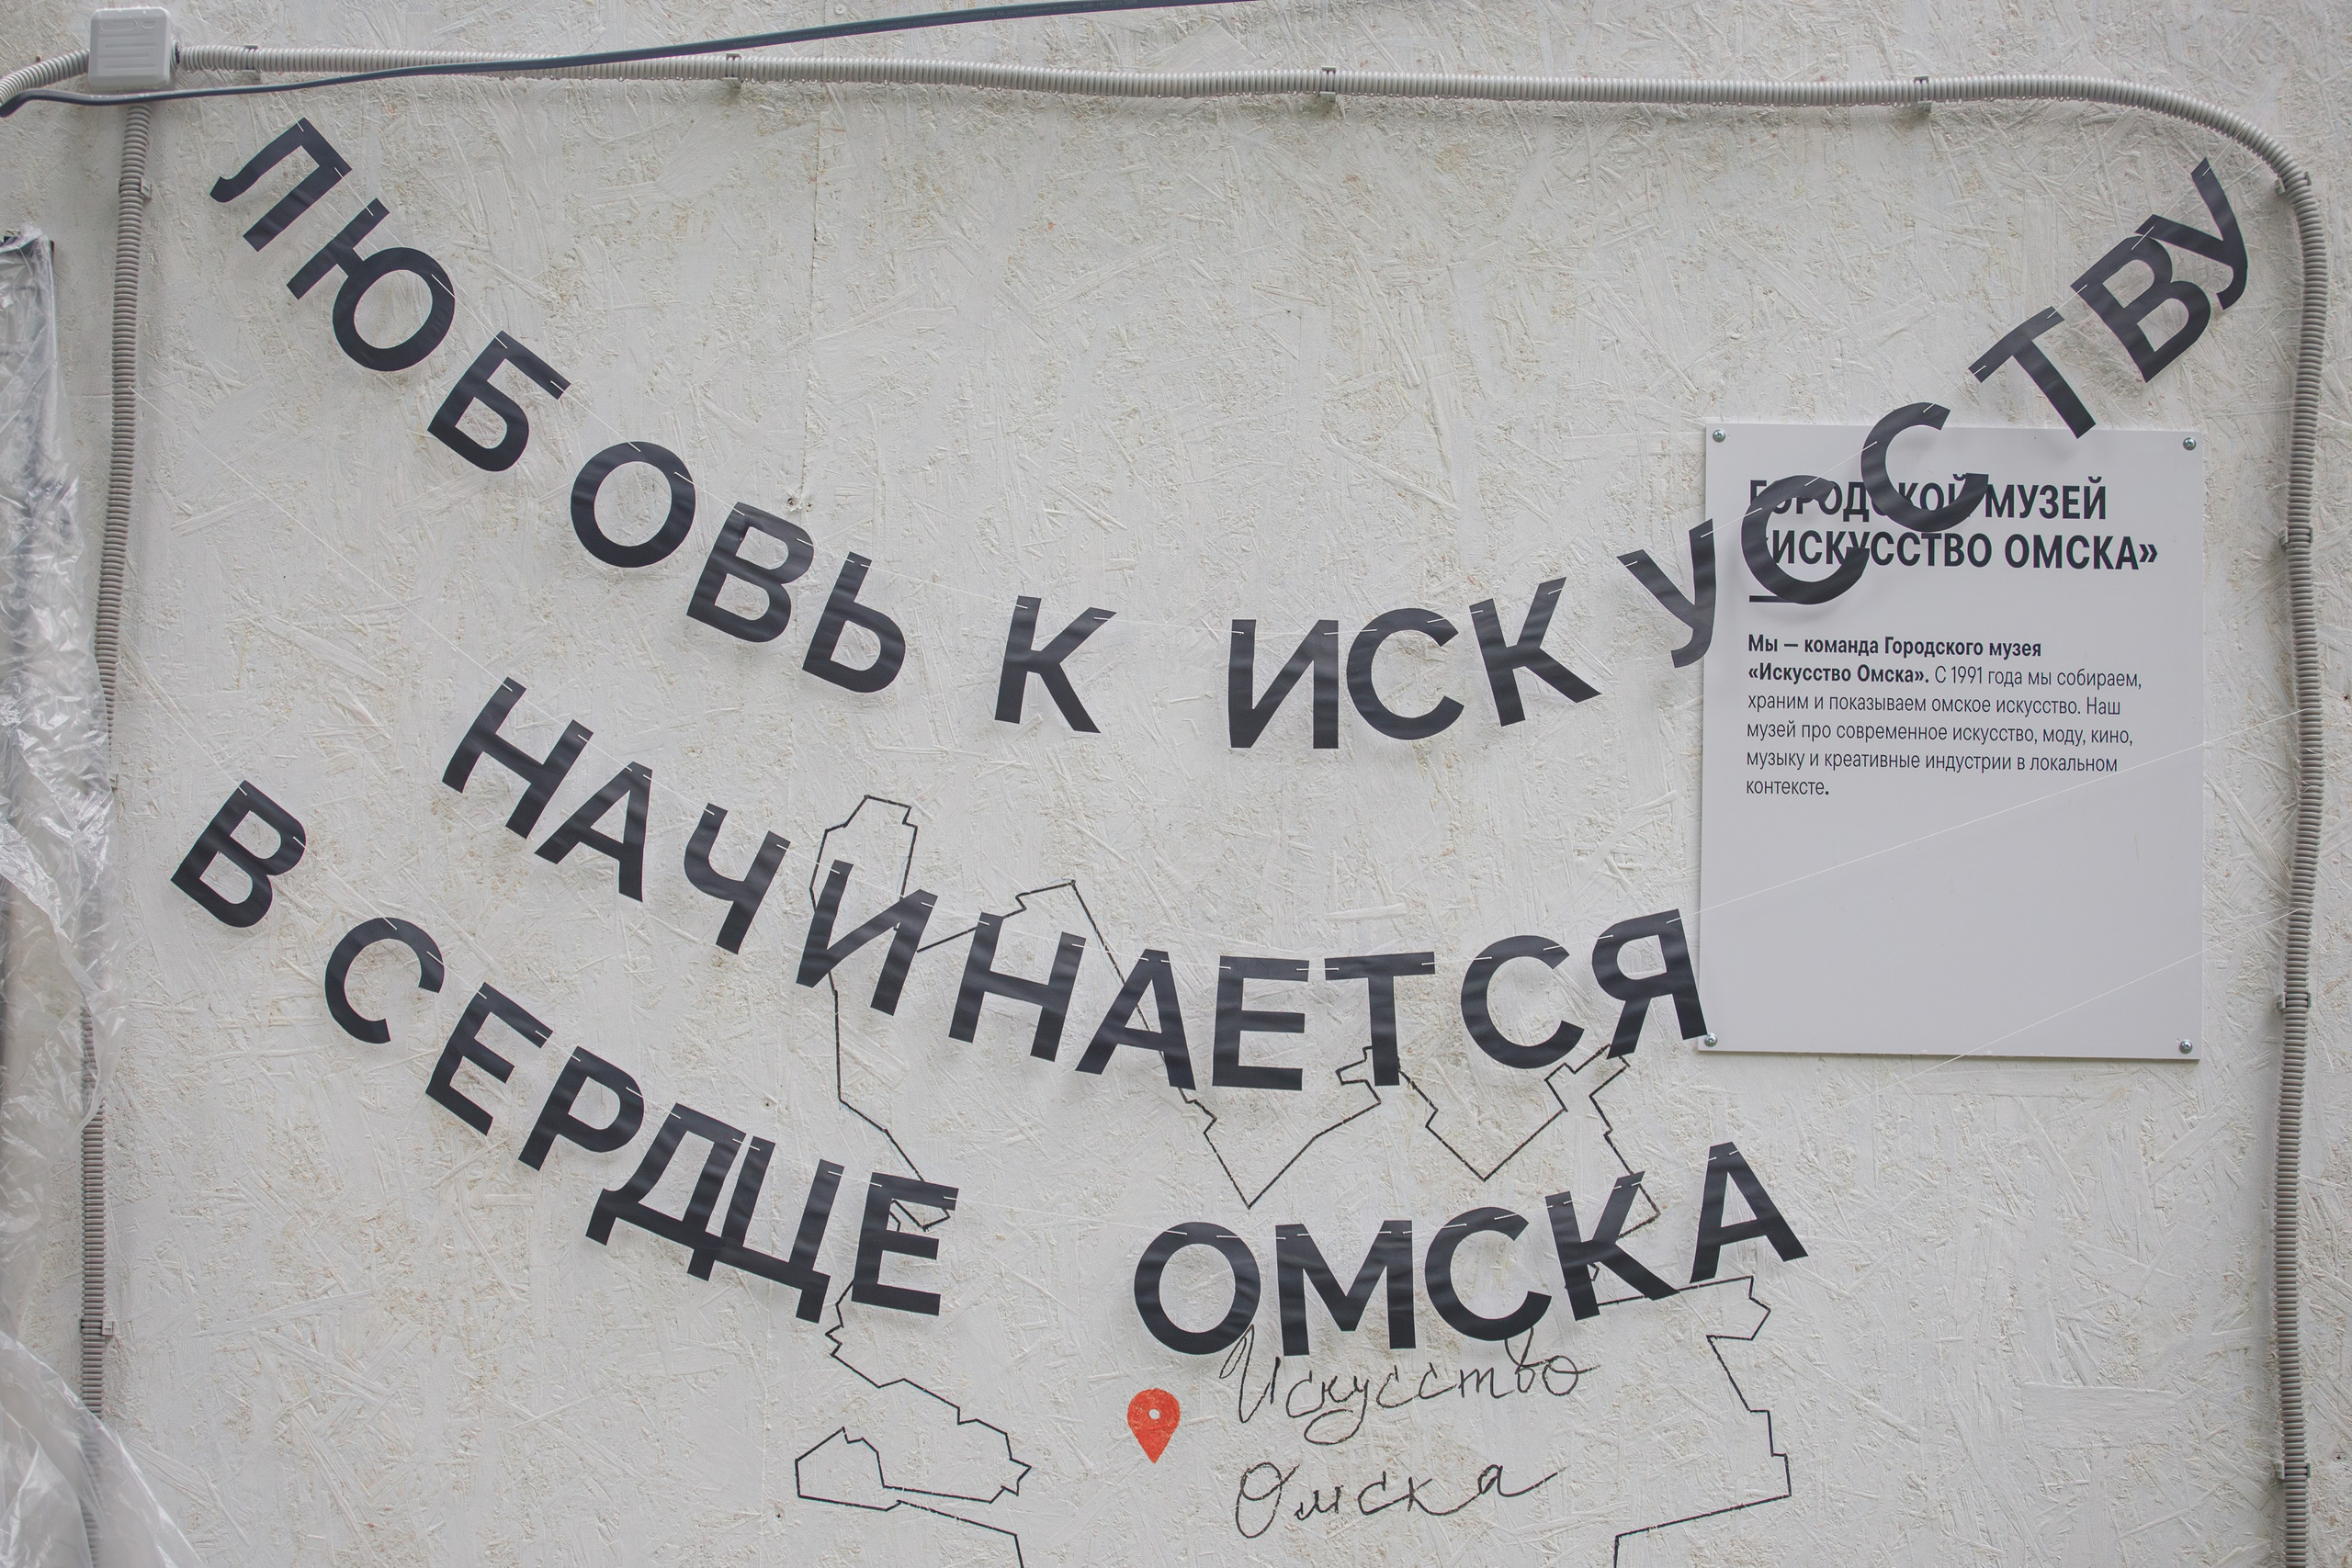 ЛЮБОВЬ К ИСКУССТВУ
НАЧИНАЕТСЯ
В СЕРДЦЕ ОМСКА
ГОРОДСКОЙ МУЗЕЙ
«ИСКУССТВО ОМСКА»
Мы — команда Городского музея
«Искусство Омска». С 1991 года мы собираем,
храним и показываем омское искусство. Наш
музей про современное искусство, моду, кино,
музыку и креативные индустрии в локальном
контексте.
Искусство
Омска